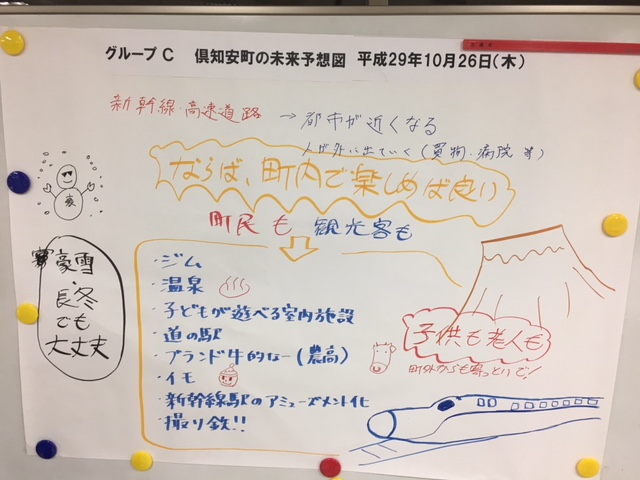 グループ C　倶知安町の未来予想図　平成29年10月26日(木)
新幹線・高速道路 → 都市が近くなる
人が外に出ていく(買物、病院 等)
ならば、町内で楽しめば良い
町民も 観光客も
豪雪・長冬でも大丈夫
・ジム
・温泉
・子どもが遊べる室内施設
・道の駅
・ブランド牛的なー(農高)
・イモ
・新幹線駅のアミューズメント化
・撮り鉄!!
子供も老人も
町外からも寄っといで!